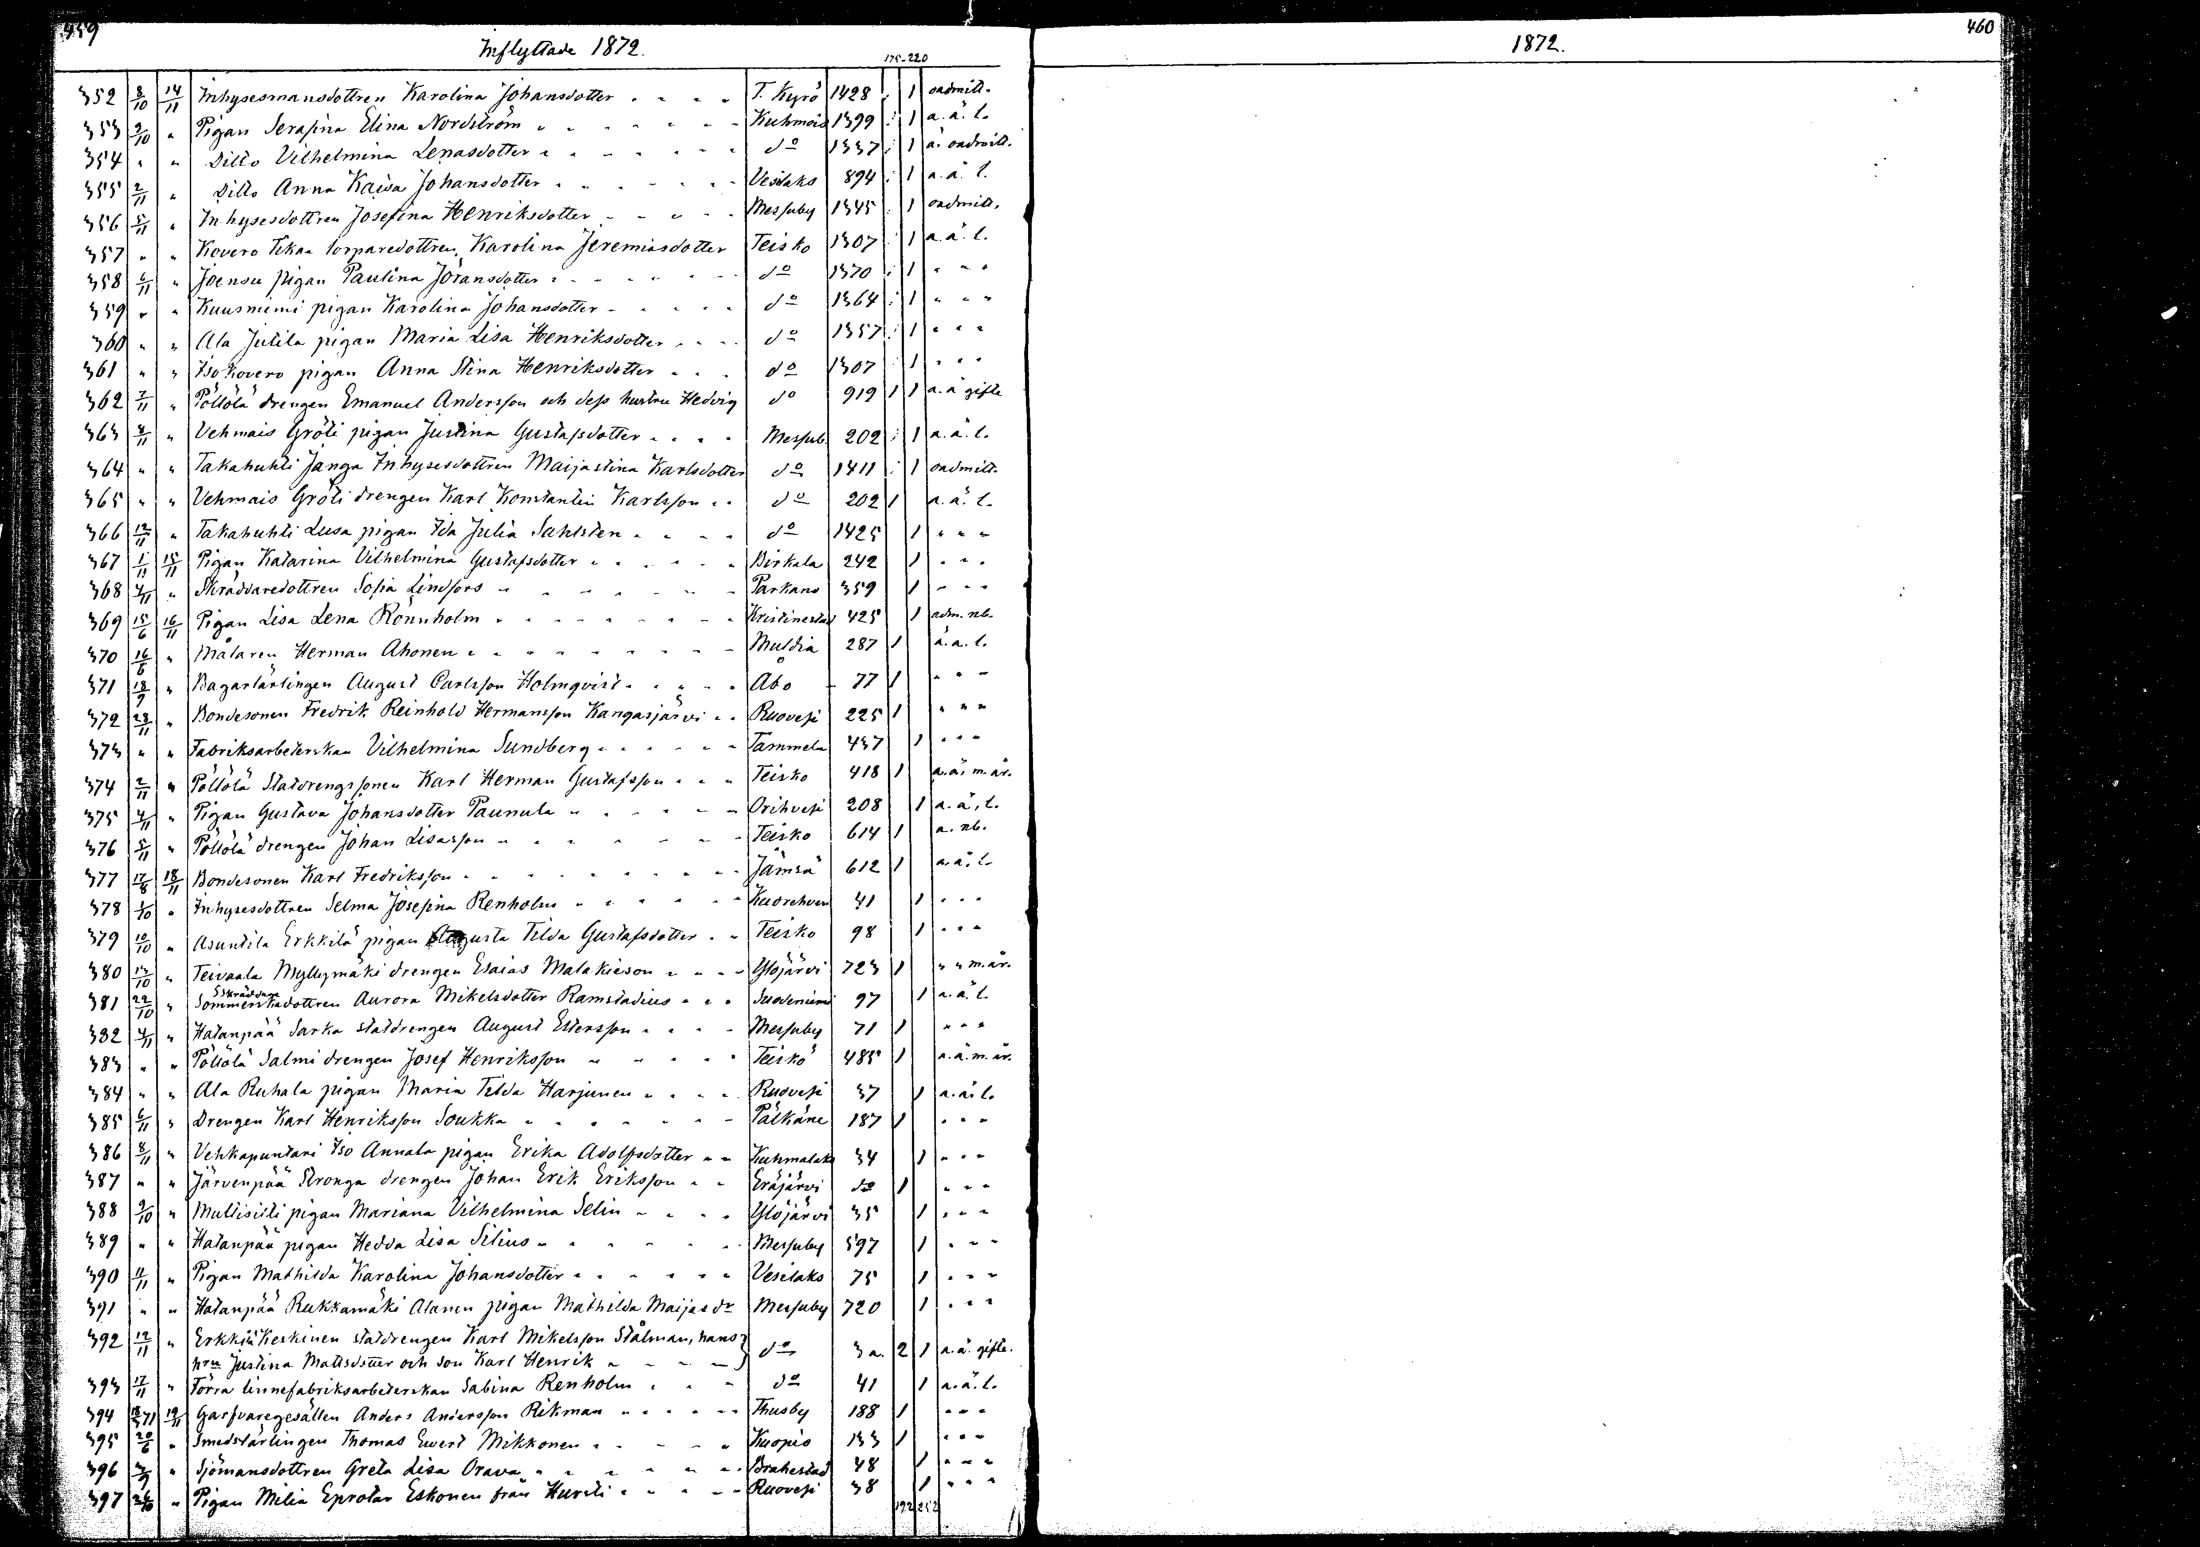 459
Inflyttade 1872.
175-220
352 8/10 14/11 Inhysesmansdottren Karolina Johansdotter T. Kyrö 1428 1 oadmitt.
353 9/10 " Pigan Serafina Elina Nordström Kuhmois 1399 1 a. ä. l.
354 " " Ditto Vilhelmina Lenasdotter do 1337 1 ä. oadmitt.
355 2/11 " Ditto Anna Kaisa Johansdotter Vesilaks 894 1 a. ä. l.
356 5/11 " Inhysesdottren Josefina Henriksdotter Messuby 1345 1 oadmitt.
357 " " Kovero Tekaa torparedottren Karolina Jeremiasdotter Teisko 1307 1 a. ä. l.
358 6/11 " Joensu pigan Paulina Jöransdotter do 1370 1 " " "
359 " " Kuusniemi pigan Karolina Johansdotter do 1364 1 " " "
360 " " Ala Jutila pigan Maria Lisa Henriksdotter do 1357 1 " " "
361 " " Iso Kovero pigan Anna Stina Henriksdotter do 1307 1 " " "
362 7/11 " Pöllölä drengen Emanuel Andersson och dess hustru Hedvig do 919 1 1 a. ä gifte
363 8/11 " Vehmais Gröti pigan Justina Gustafsdotter Messub. 202 1 a. ä. l.
364 " " Takahuhti Janga Inhysesdottren Maijastina Karlsdotter do 1411 1 oadmitt.
365 " " Vehmais Gröti drengen Karl Konstantin Karlsson do 202 1 a. ä. l.
366 12/11 " Takahuhti Lusa pigan Ida Julia Sahlsten do 1425 1 " " "
367 1/11 15/11 Pigan Katarina Vilhelmina Gustafsdotter Birkala 242 1 " " "
368 4/11 " Skräddaredottren Sofia Lindfors Parkano 359 1 " " "
369 15/6 16/11 Pigan Lisa Lena Rönnholm Kristinestad 425 1 adm. nb.
370 16/6 " Målaren Herman Ahonen Multia 287 1 ä. a. l.
371 18/9 " Bagarlärlingen August Carlsson Holmqvist Åbo 77 1 " " "
372 28/11 " Bondesonen Fredrik Reinhold Hermansson Kangasjärvi Ruovesi 225 1 " " "
373 " " Fabriksarbeterskan Vilhelmina Sundberg Tammela 437 1 " " "
374 2/11 " Pöllölä Statdrengssonen Karl Herman Gustafsson Teisko 418 1 a. ä. m. är.
375 4/11 " Pigan Gustava Johansdotter Paunula Orihvesi 208 1 a. ä. l.
376 5/11 " Pöllölä drengen Johan Lisasson Teisko 614 1 a. nb.
377 17/8 18/11 Bondesonen Karl Fredriksson Jämsä 612 1 a. ä. l.
378 1/10 " Inhysesdottren Selma Josefina Renholm Kuorehven 41 1 " " "
379 10/10 " Asuntila Erkkilä pigan Augusta Tilda Gustafsdotter Teisko 98 1 " " "
380 13/10 " Teivaala Myllymäki drengen Esaias Malakieson Ylöjärvi 723 1 " " m. är.
381 22/10 " Sommerskadottren Aurora Mikelsdotter Ramstadius Suodeniemi 97 1 a. ä. l.
382 4/11 " Hatanpää Sarka statdrengen August Estersson Messuby 71 1 " " "
383 " " Pöllölä Salmi drengen Josef Henriksson Teisko 485 1 a. ä. m. är.
384 " " Ala Ruhala pigan Maria Tilda Harjunen Ruovesi 37 1 a. ä. l.
385 6/11 " Drengen Karl Henriksson Soukka Pälkäne 187 1 " " "
386 8/11 " Vehkapuntari Iso Annala pigan Erika Adolfsdotter Kuhmalaks 34 1 " " "
387 " " Järvenpää Stronga drengen Johan Erik Eriksson Eräjärvi do 1 " " "
388 9/10 " Multisilti pigan Mariana Vilhelmina Selin Ylöjärvi 35 1 " " "
389 " " Hatanpää pigan Hedda Lisa Silius Messuby 597 1 " " "
390 11/11 " Pigan Mathilda Karolina Johansdotter Vesilaks 75 1 " " "
391 " " Hatanpää Rukkamäki Alanen pigan Mathilda Maijasdr Messuby 720 1 " " "
392 12/11 " Erkkiä Keskinen statdrengen Karl Mikelsson Stålman, hans
hru Justina Mattsdotter och son Karl Henrik do 3 a. 2 1 a. ä. gifte.
393 17/11 " Förra linnefabriksarbeterskan Sabina Renholm do 41 1 a. ä. l.
394 18/3 71 19/11 Garfvaregesällen Anders Andersson Rikman Thusby 188 1 " " "
395 20/6 " Smedslärlingen Thomas Evert Mikkonen Kuopio 133 1 " " "
396 3/9 " Sjömansdottren Greta Lisa Orava Brahestad 48 1 " " "
397 26/10 " Pigan Milia Eprotar Eskonen från Ruovesi 38 1 " " "
192 252
1872.
460